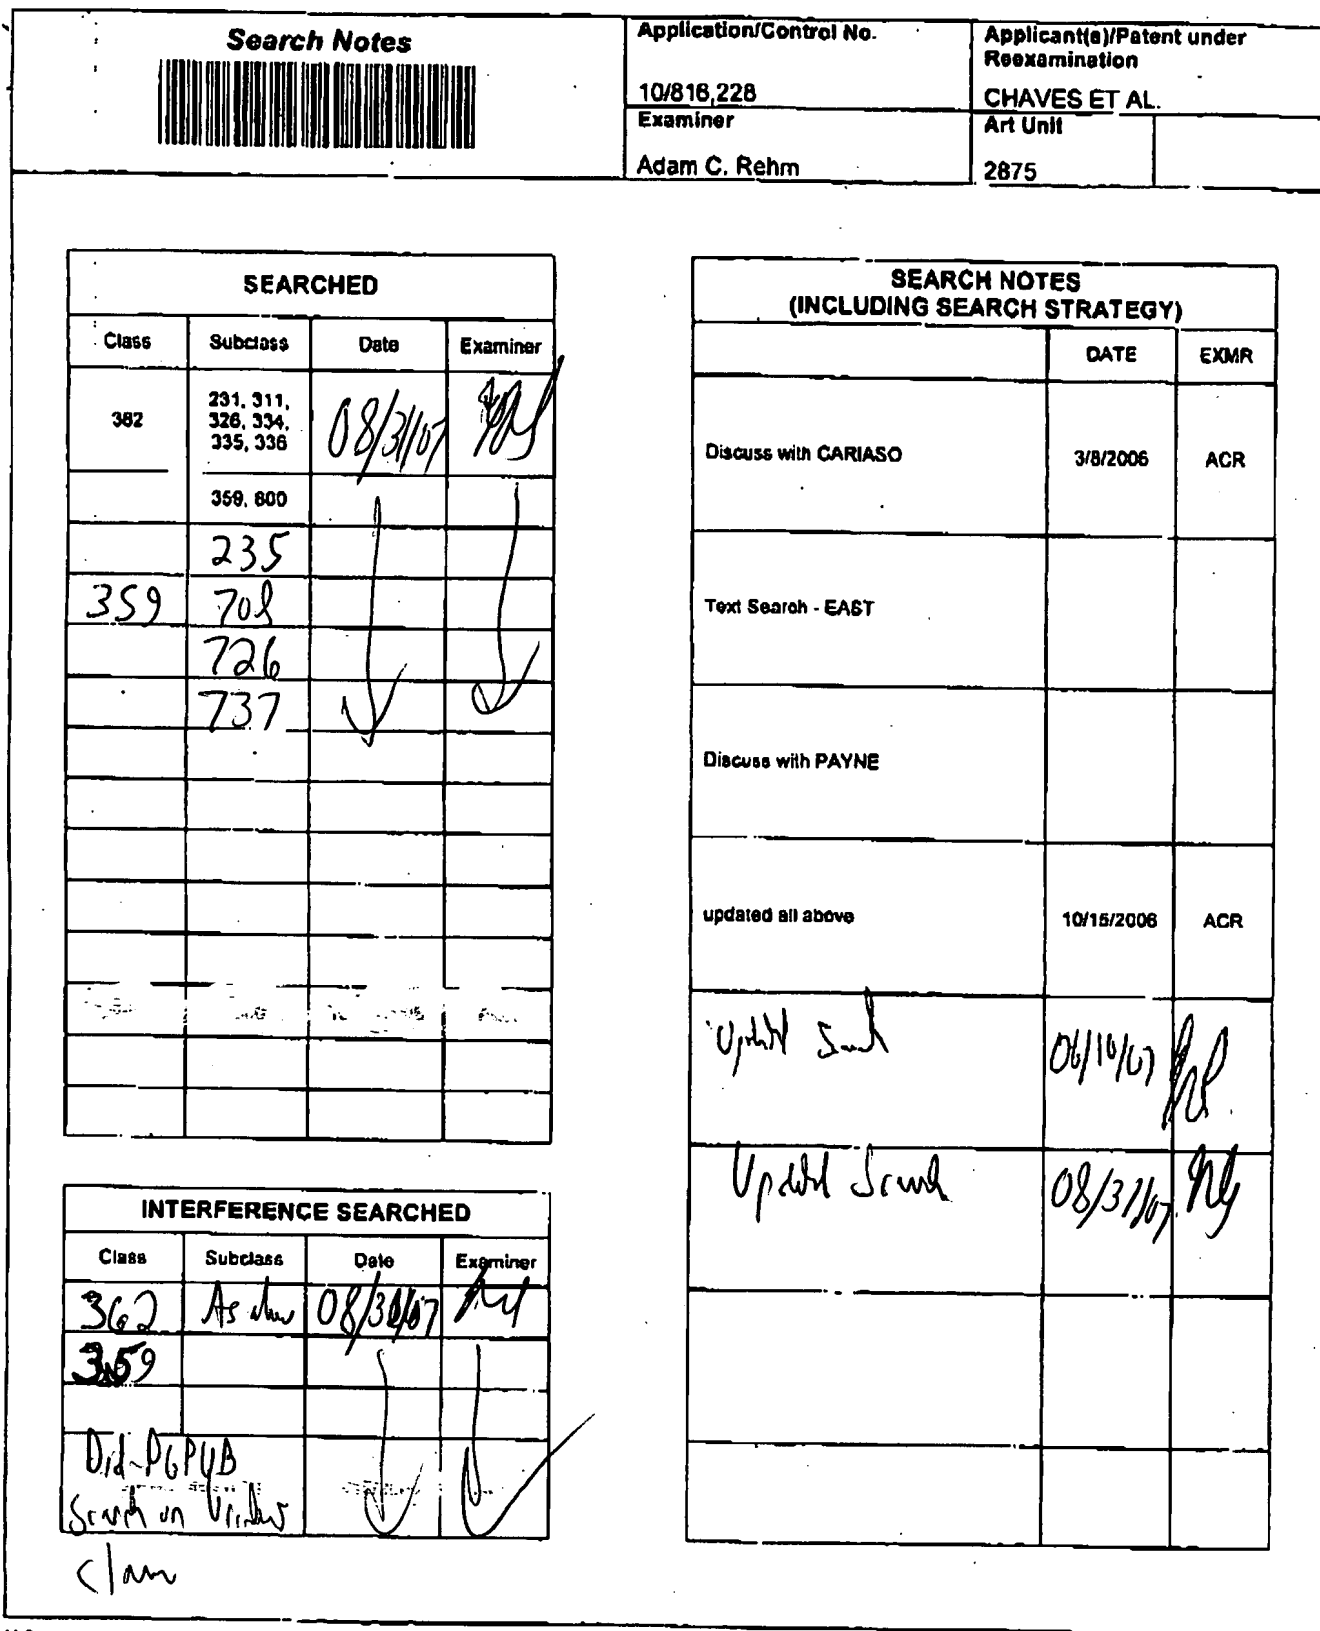 Search Notes
Application/Control No.
10/816,228
Applicant(s)/Patent under
Reexamination
CHAVES ET AL.
Examiner
Adam C. Rehm
Art Unit
2875
SEARCHED
Class Subclass Date Examiner
362 231, 311,
326, 334,
335, 336
08/31/07
359, 800
235
359 708
726
737
INTERFERENCE SEARCHED
Class Subclass Date Examiner
362 As above 08/31/07
359
Did PGPUB
Search on Various
Claim
SEARCH NOTES
(INCLUDING SEARCH STRATEGY)
DATE EXMR
Discuss with CARIASO 3/8/2006 ACR
Text Search - EAST
Discuss with PAYNE
updated all above 10/15/2006 ACR
Updated Search 06/10/07
Updated Search 08/31/07